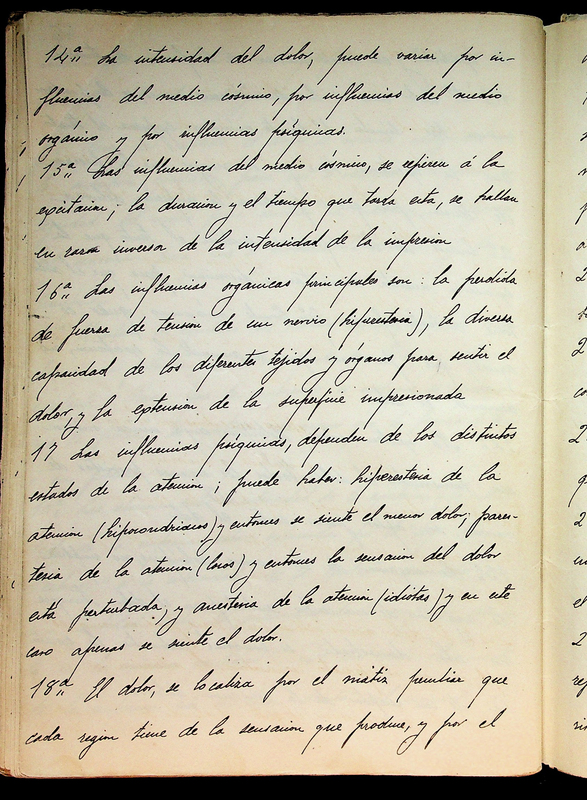 14ª La intensidad del dolor, puede variar por in-
fluencias del medio cósmico, por influencias del medio
orgánico y por influencias psíquicas.
15ª Las influencias del medio cósmico, se refieren á la
excitacion; la duracion y el tiempo que tarda esta, se hallan
en razon inversa de la intensidad de la impresion
16ª Las influencias orgánicas principales son: la perdida
de fuerza de tension de un nervio (hiperestesia), la diversa
capacidad de los diferentes tejidos y órganos para sentir el
dolor, y la extension de la superficie impresionada
17 Las influencias psíquicas, dependen de los distintos
estados de la atencion; puede haber: hiperestesia de la
atencion (hipocondriacos) y entonces se siente el menor dolor; pares-
tesia de la atencion (locos) y entonces la sensacion del dolor
está perturbada, y anestesia de la atencion (idiotas) y en este
caso apenas se siente el dolor.
18ª El dolor, se localiza por el matiz peculiar que
cada region tiene de la sensacion que produce, y por el